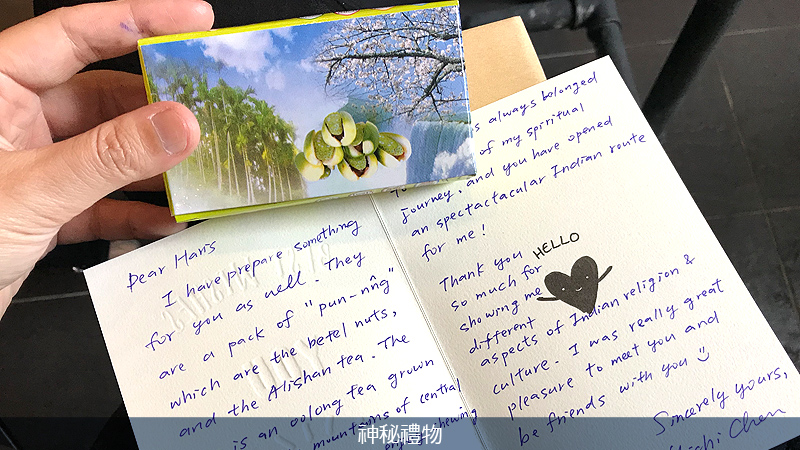 Dear Haris
I have prepare something
for you as well. They
are a pack of "pun-nn̂g"
which are the betel nuts,
and the Alishan tea. The
is an oolong tea grown
mountains of central
chewing
always belonged
of my spiritual
journey, and you have opened
an spectactular Indian route
for me!
Thank you
so much for
showing me
different
aspects of Indian religion &
culture. I was really great
pleasure to meet you and
be friends with you
HELLO
Sincerely yours,
Chen
神秘禮物